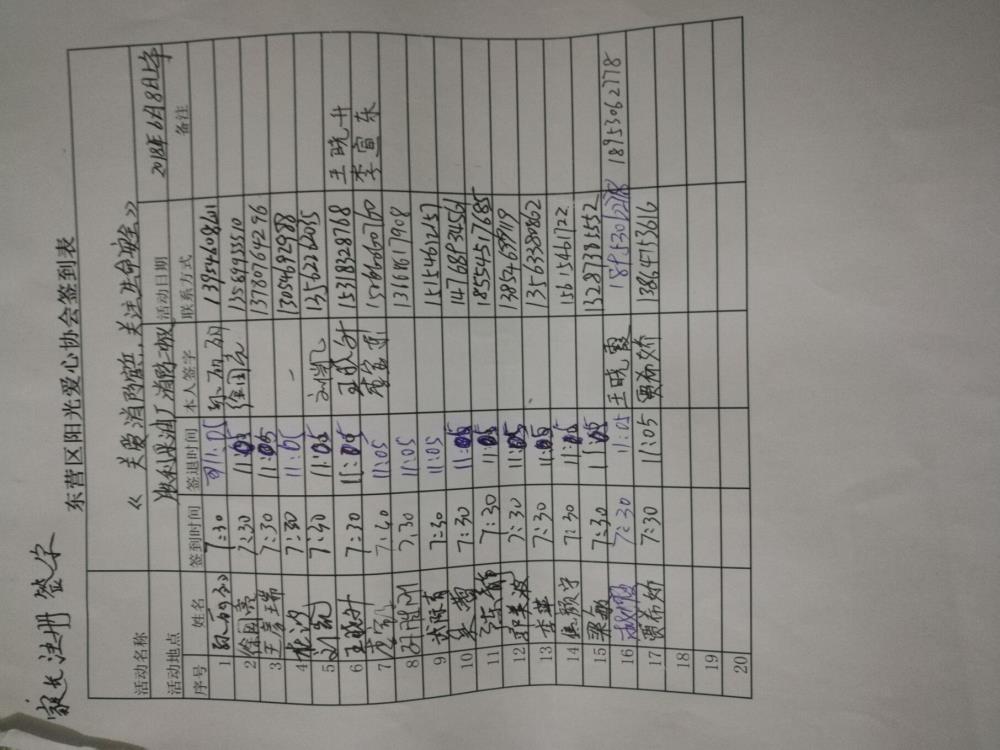 家长注册 签字
东营区阳光爱心协会签到表
活动名称 《关爱消防官兵,关注生命安全》
活动地点 胜利采油厂消防 活动日期 2018年6月8日上午
序号 姓名 签到时间 签退时间 本人签字 联系方式 备注
1 7:30 11:05 13954608601
2 徐国亮 7:30 11:05 徐国亮 13589933510
3 于彦瑞 7:30 11:05 13780764296
4 7:30 11:05 13054692988
5 刘凯 7:30 11:05 13562262035
6 王晓升 7:30 11:05 王晓升 15318328768 王晓升
7 7:40 11:05 李宣东
8 7:30 11:05
9 7:30 11:05 15154612157
10 7:30 11:05 14768934561
11 7:30 11:05 18554517685
12 郭美波 7:30 11:05 13854699119
13 李萍 7:30 11:05 13563380862
14 7:30 11:05 15615461722
15 梁敏 7:30 11:05 13287383552
16 7:30 11:05 王晓霞 18953062778 18953062778
17 贾希娇 7:30 11:05 贾希娇 13864753616
18
19
20